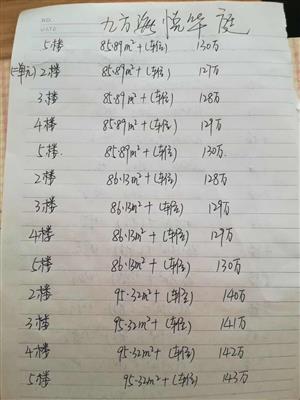 NO.
DATE
九方 悦华庭
5楼 85.89m²+(车位) 130万
(二单元) 2楼 85.89m²+(车位) 127万
3楼 85.89m²+(车位) 128万
4楼 85.89m²+(车位) 129万
5楼. 85.89m²+(车位) 130万.
2楼 86.13m²+(车位) 128万
3楼 86.13m²+(车位) 129万
4楼 86.13m²+(车位) 129万
5楼 86.13m²+(车位) 130万
2楼 95.32m²+(车位) 140万
3楼 95.32m²+(车位) 141万
4楼 95.32m²+(车位) 142万
5楼 95.32m²+(车位) 143万